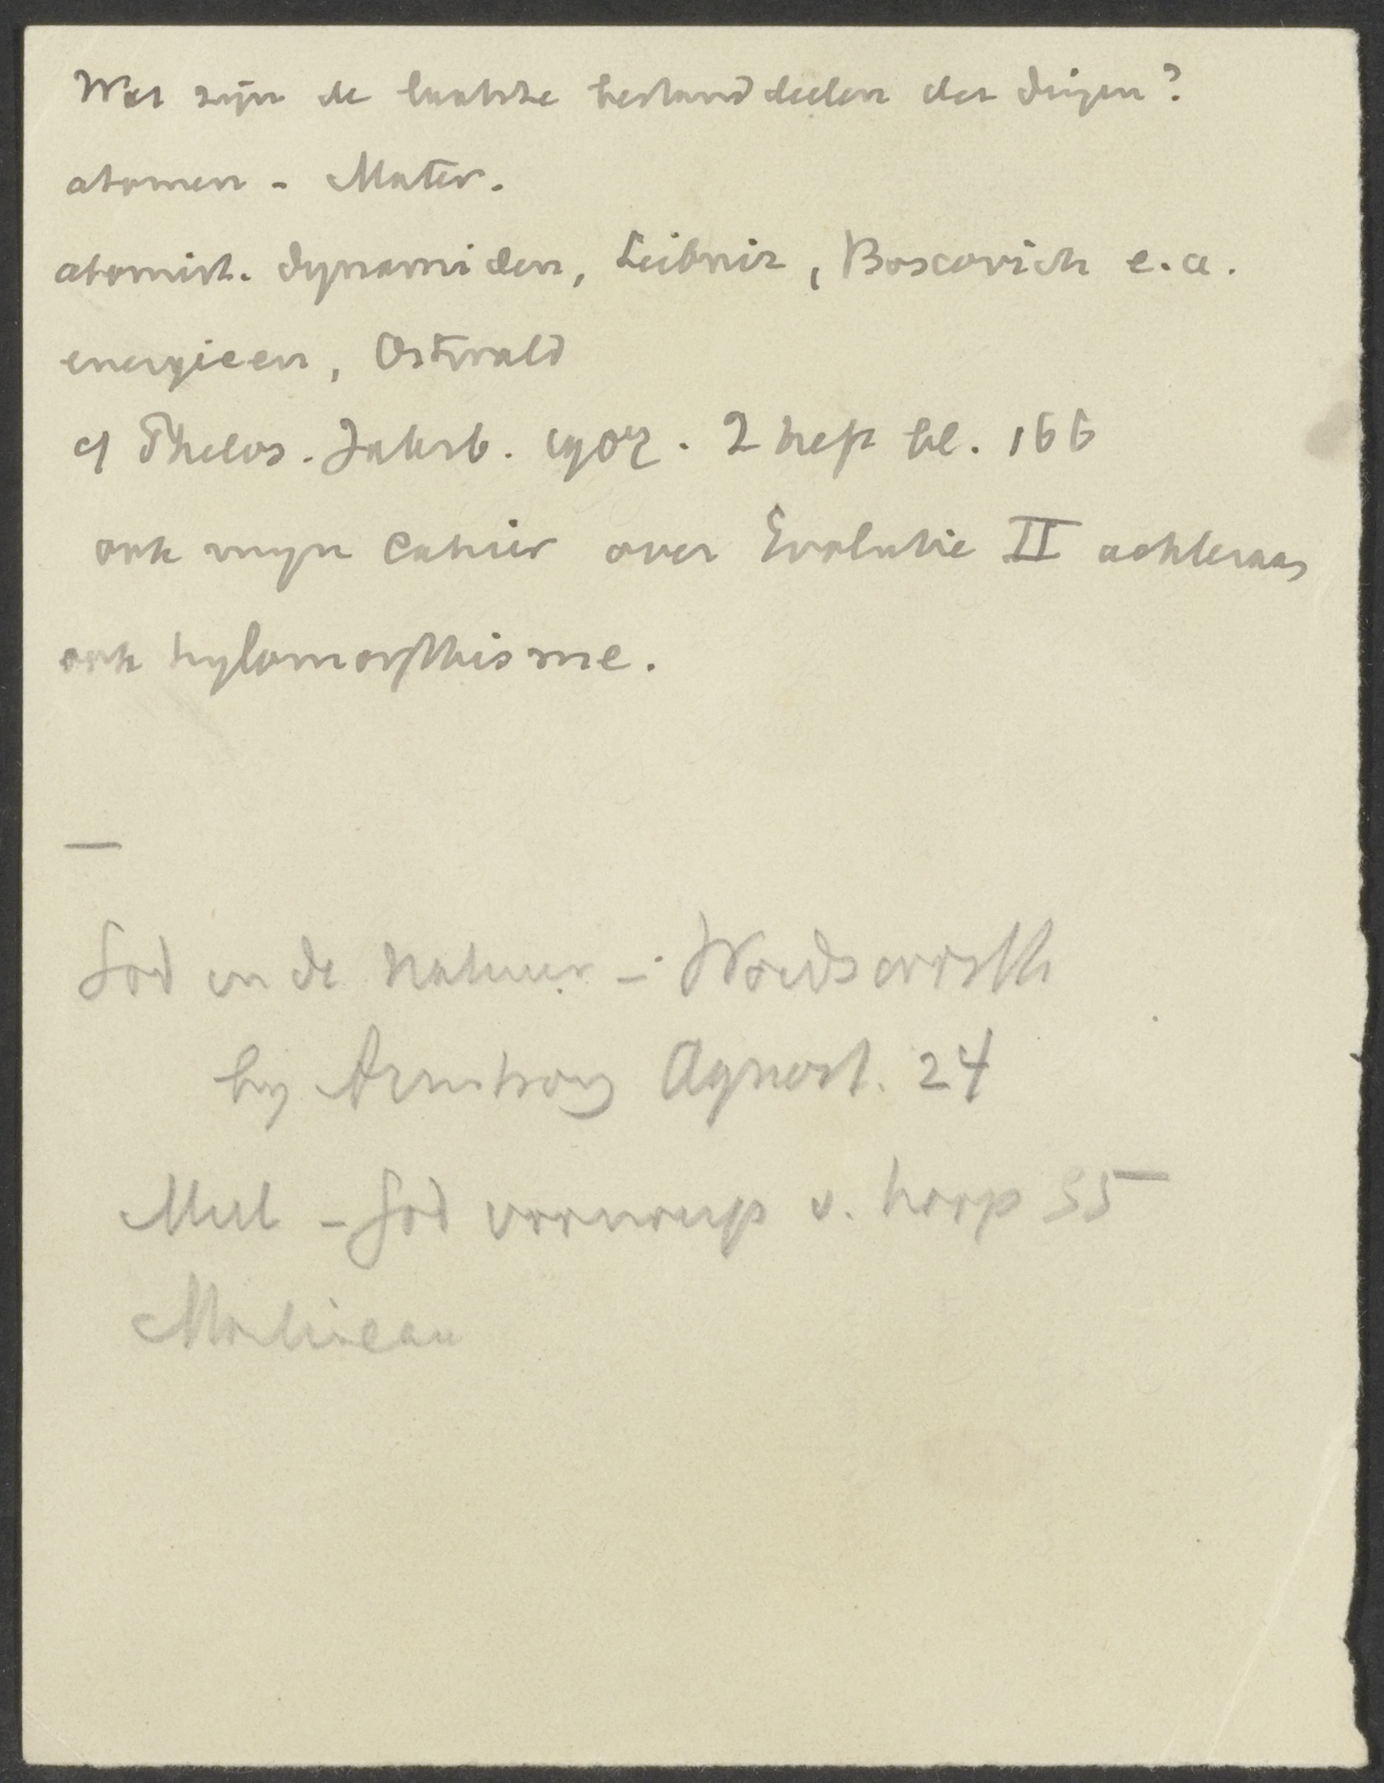 Wat zijn de laatste bestanddeelen der dingen?
atomen - Mater.
atomist. dynamiden, Leibniz, Boscovich e.a.
energieen, Ostwald
cf Philos. Jahrb. 1907. 2 heft bl. 166
ook mijn cahier over Evolutie II achteraan
ook hylomorphisme.
—
God in de natuur - Wordsworth
by Armstrong Agnost. 24
Mill - God voorwerp v. hoop 55
Martineau